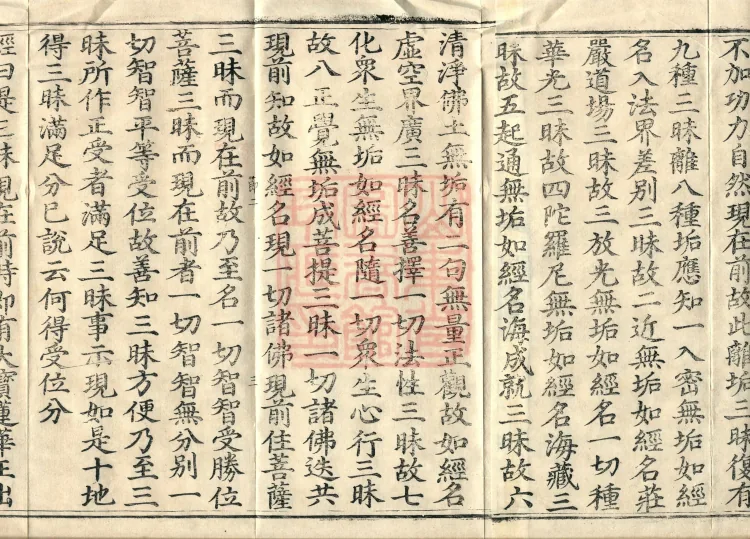 不加功力自然現在前故此離垢三昧復有
九種三昧離八種垢應知一入密無垢如經
名入法界差別三昧故二近無垢如經名莊
嚴道場三昧故三放光無垢如經名一切種
華光三昧故四陀羅尼無垢如經名海藏三
昧故五起通無垢如經名海成就三昧故六
清淨佛土無垢有二句無量正觀故如經名
虛空界廣三昧名善擇一切法性三昧故七
化衆生無垢如經名隨一切衆生心行三昧
故八正覺無垢成菩提三昧一切諸佛迭共
現前知故如經名現一切諸佛現前住菩薩
三昧而現在前故乃至名一切智智受勝位
菩薩三昧而現在前者一切智智無分別一
切智智平等受位故善知三昧方便乃至三
昧所作正受者滿足三昧事示現如是十地
得三昧滿足分已說云何得受位分
經曰是三昧現在前時即有大寶蓮華王出